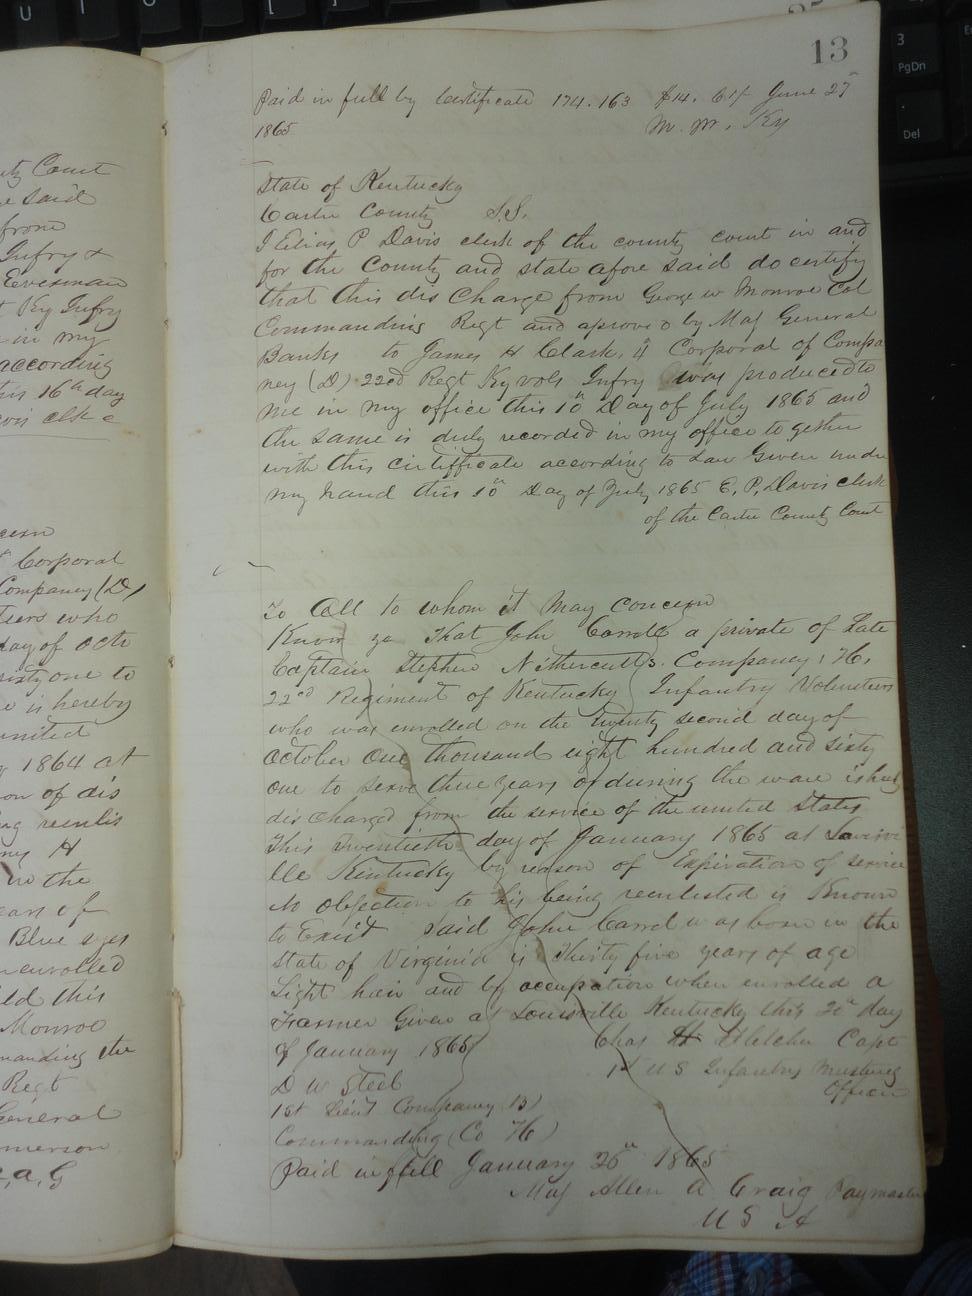 13
Paid in full by Certificate 174.163 $14. June 27
1865 M. M. Ky
State of Kentucky
Carter County S.S.
I Elias P Davis clerk of the county court in and
for the County and state afore said do certify
that this dis charge from George W Monroe Col
Commanding Regt and aproved by Maj General
Banks to James H Clark, 4" Corporal of Compa
ney (D) 22ed Regt Ky vols Infry was produced to
me in my office this 10" Day of July 1865 and
the same is duly recorded in my office to gether
with this cirtifficate according to Law Given under
my hand this 10" Day of July 1865 E. P. Davis clerk
of the Carter County Court
To All to whom it May Concern
Know ye That John Carrol a private of Late
Captain Stephen Nethercutts. Company, H,
22nd Regiment of Kentucky Infantry Volunteers
who was enrolled on the twenty second day of
October One thousand eight hundred and sixty
one to serve three years or during the ware is hereby
dis charged from the service of the united States
This Twentieth day of January 1865 at Louisvi
lle Kentucky by reason of Expiration of service
No objection to his being reenlested is Known
to Exist Said John Carrol was born in the
State of Virginia is Thirty five years of age
Light hair and by occupation when enrolled a
Farmer Given at Louisville Kentucky this 20" day
of January 1865 Chas H Fletcher Capt
D W Steel 1st U S Infantry Mustering
Officer
1st Lieut Company B)
Commanding (Co H)
Paid in full January 26" 1865
Maj Allen A Craig Paymaster
U S A
ty Court
said
from
Infry &
Everman
Ky Infry
in my
according
his 16th day
vis clk c
cern
Corporal
Company (D)
teers who
day of octo
sixty one to
is hereby
united
1864 at
on of dis
ng reenlis
ny H
in the
ears of
Blue eyes
enrolled
ld this
Monroe
manding the
Regt
General
merson
A, G
U
I
O
3
PgDn
Del